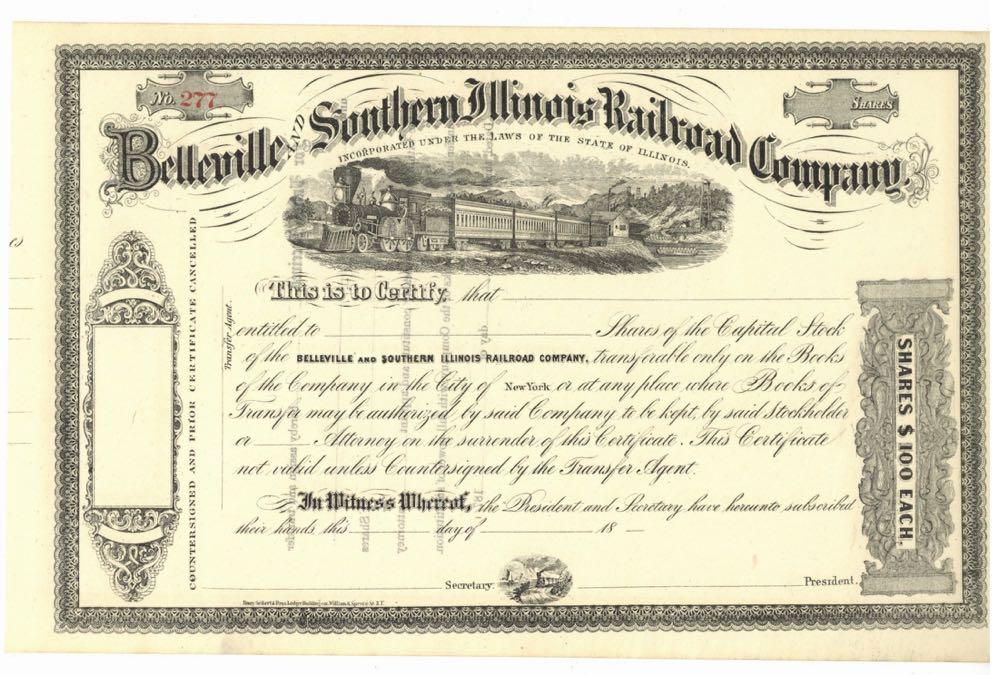 No. 277
SHARES
Belleville AND Southern Illinois Railroad Company.
INCORPORATED UNDER THE LAWS OF THE STATE OF ILLINOIS.
This is to Certify, that
entitled to Shares of the Capital Stock
of the BELLEVILLE AND SOUTHERN ILLINOIS RAILROAD COMPANY, transferable only on the Books
of the Company in the City of New York or at any place where Books of
Transfer may be authorized by said Company to be kept, by said Stockholder
or Attorney on the surrender of this Certificate. This Certificate
not valid unless Countersigned by the Transfer Agent.
In Witness Whereof, the President and Secretary have hereunto subscribed
their hands this day of 18
Secretary.
President.
COUNTERSIGNED AND PRIOR CERTIFICATE CANCELLED
Transfer Agent.
SHARES $100 EACH.